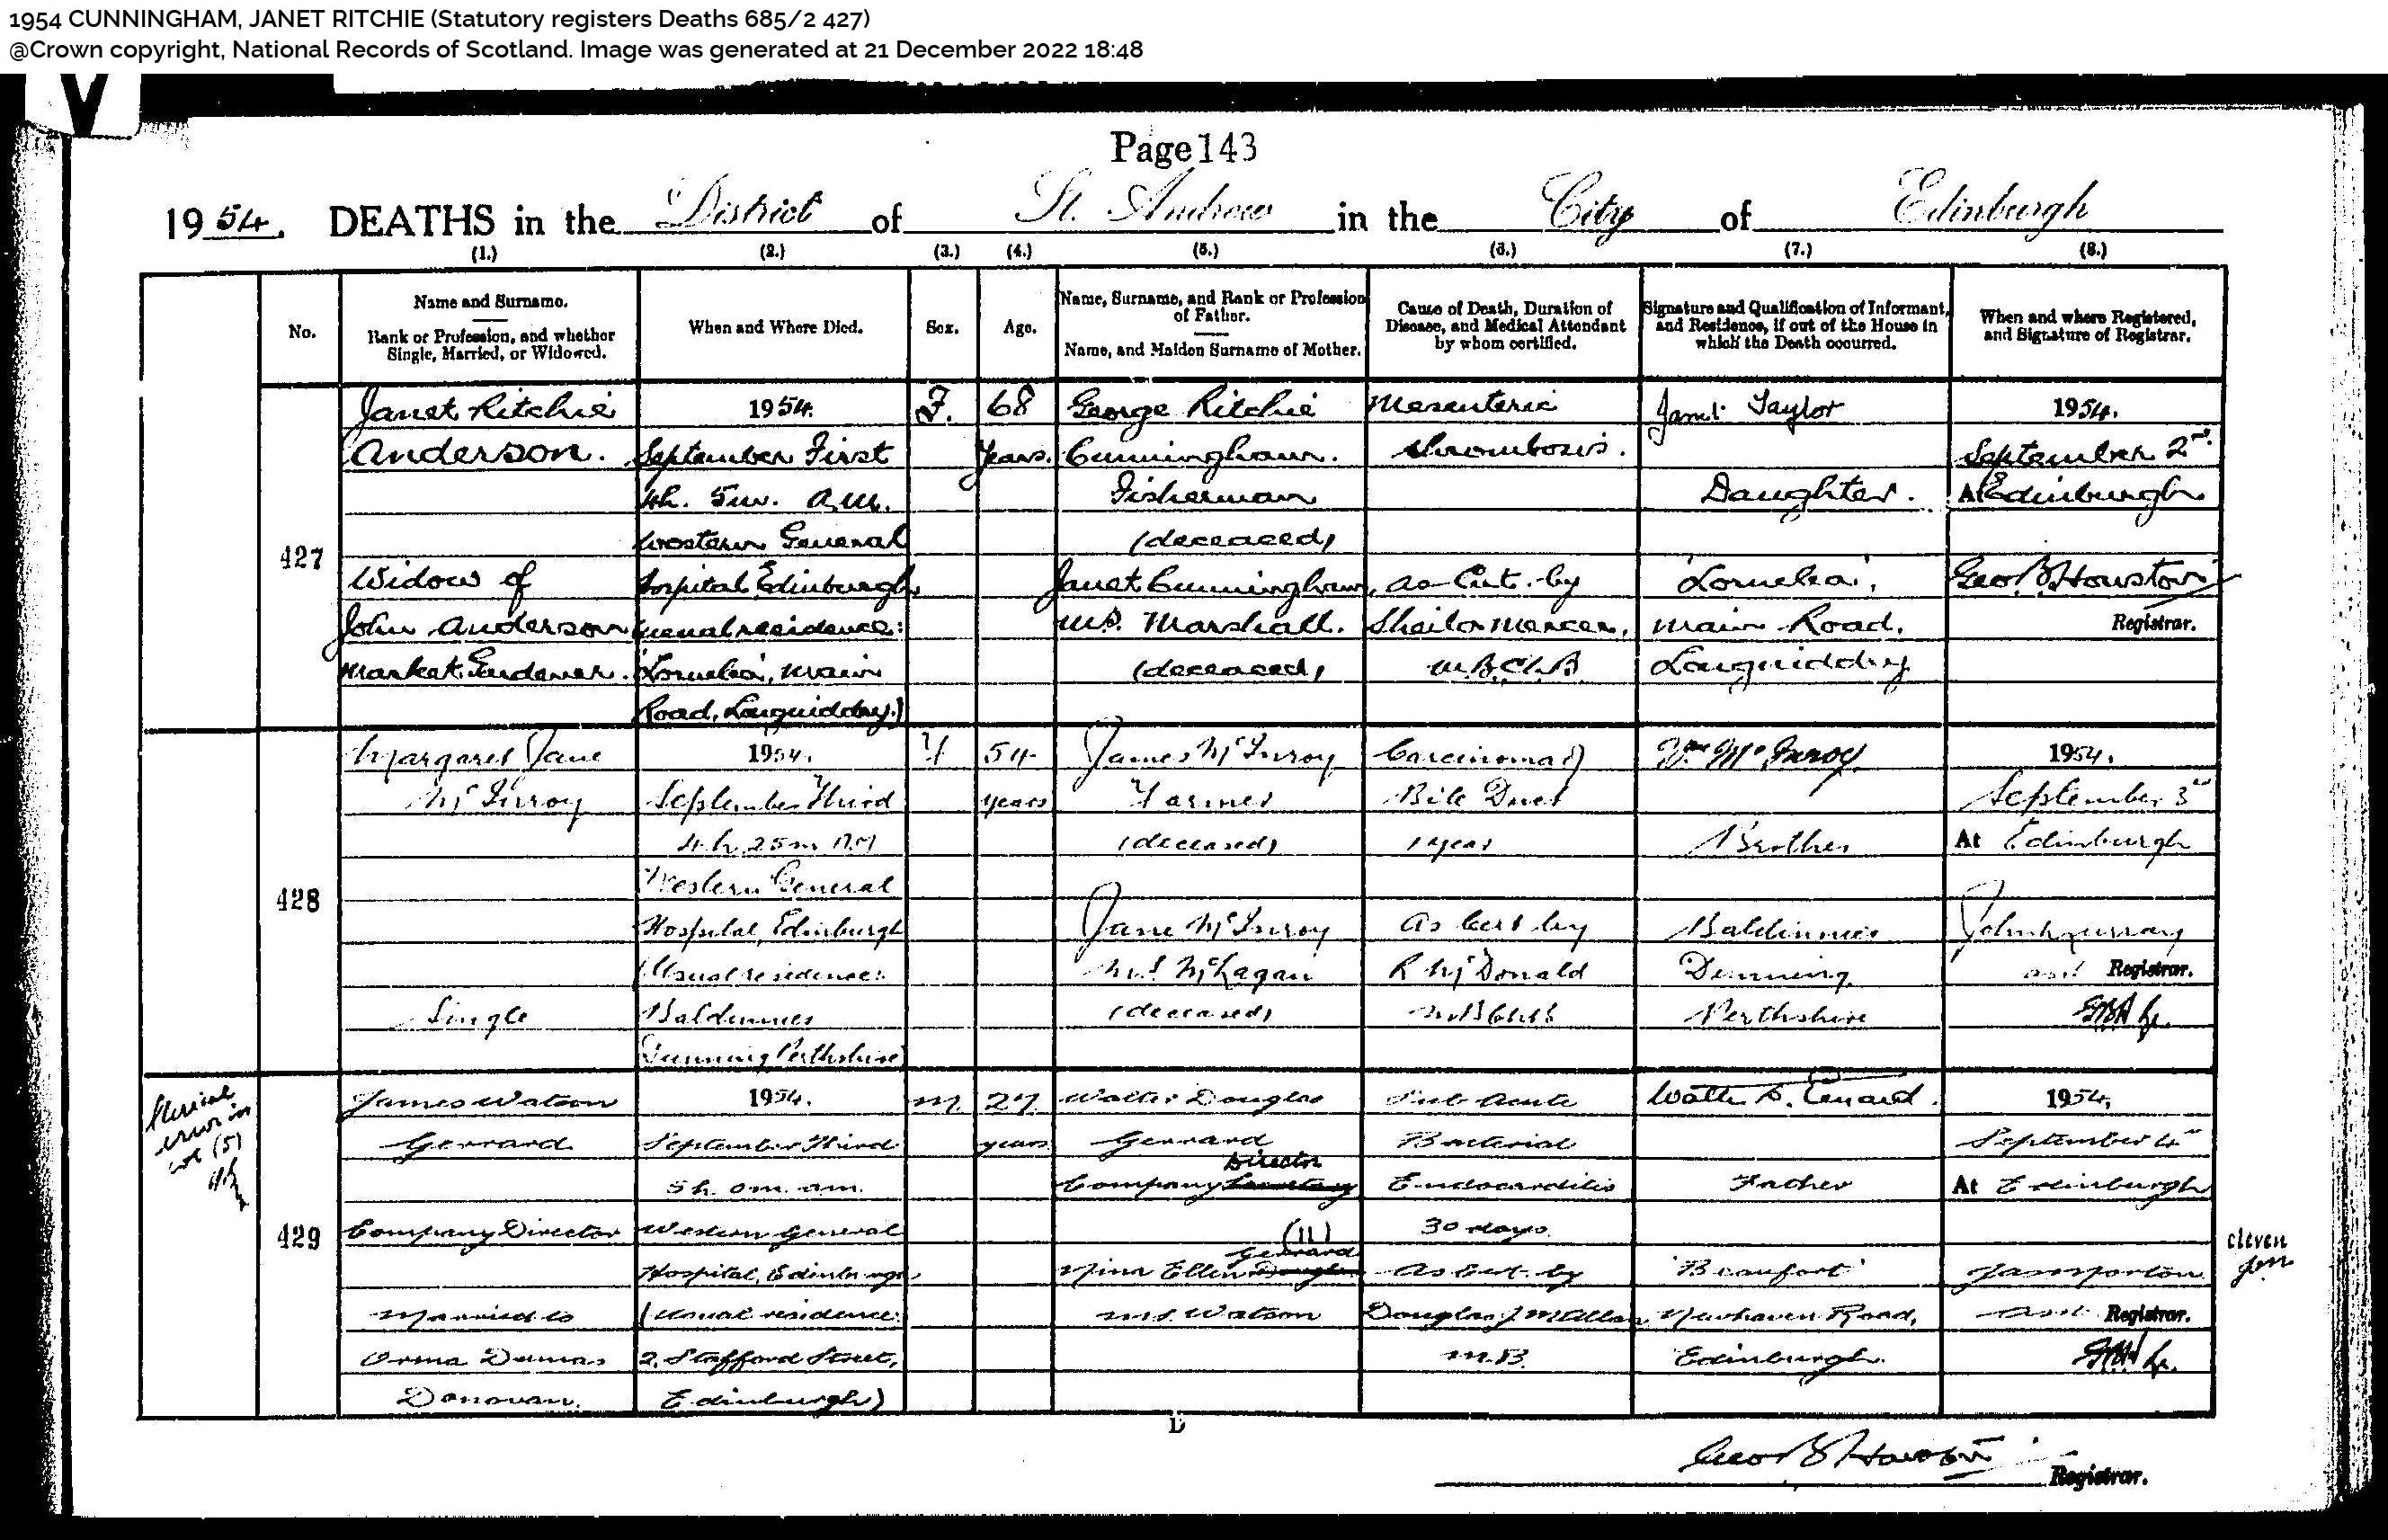 1954 CUNNINGHAM, JANET RITCHIE (Statutory registers Deaths 685/2 427)
@Crown copyright, National Records of Scotland. Image was generated at 21 December 2022 18:48
V
Page 143
1954. DEATHS in the District of St. Andrew in the City of Edinburgh
(1.) (2.) (3.) (4.) (5.) (6.) (7.) (8.)
No.
Name and Surname.
Rank or Profession, and whether
Single, Married, or Widowed.
When and Where Died.
Sex.
Age.
Name, Surname, and Rank or Profession
of Father.
Name, and Maiden Surname of Mother.
Cause of Death, Duration of
Disease, and Medical Attendant
by whom certified.
Signature and Qualification of Informant,
and Residence, if out of the House in
which the Death occurred.
When and where Registered,
and Signature of Registrar.
427
Janet Ritchie
Anderson.
Widow of
John Anderson
Market Gardener.
1954.
September First
4h. 5m. A.M.
Western General
Hospital, Edinburgh
(usual residence:
'Lornelea', Main
Road, Longniddry.)
F.
68
Years.
George Ritchie
Cunningham.
Fisherman
(deceased)
Janet Cunningham,
M.S. Marshall.
(deceased)
Mesenteric
thrombosis.
As Cert. by
Sheila Mercer,
M.B.Ch.B.
Janet Taylor
Daughter.
'Lornelea',
Main Road,
Longniddry
1954.
September 2nd
At Edinburgh
Geo. B. Houston
Registrar.
428
Margaret Jane
McInroy
Single
1954.
September Third
4h 25m A.M
Western General
Hospital, Edinburgh
(Usual residence:
Baldinnies
Dunning Perthshire)
F
54
years
James McInroy
Farmer
(deceased)
Jane McInroy
M.S. McLagan
(deceased)
Carcinoma of
Bile Duct
1 year
As Cert by
R McDonald
M.B.Ch.B
Wm McInroy.
Brother
Baldinnies
Dunning,
Perthshire
1954.
September 3rd
At Edinburgh
John Murray
asst. Registrar.
Clerical
error in
col (5)
429
James Watson
Gerrard
Company Director
Married to
Orma Dumas
Donovan.
1954.
September Third
5h. 0m. am.
Western General
Hospital, Edinburgh
(Usual residence:
2, Stafford Street,
Edinburgh)
M.
27
years
Walter Douglas
Gerrard
Director
Company Secretary
(11)
Gerrard
Nina Ellen Douglas
M.S. Watson
Sub Acute
Bacterial
Endocarditis
30 days.
As Cert. by
Douglas J. McAllan
M.B.
Walter D. Gerrard.
Father
'Beaufort'
Newhaven Road,
Edinburgh.
1954.
September 4th
At Edinburgh
Jas Morton
Asst. Registrar.
eleven
D
Geo B Houston
Registrar.